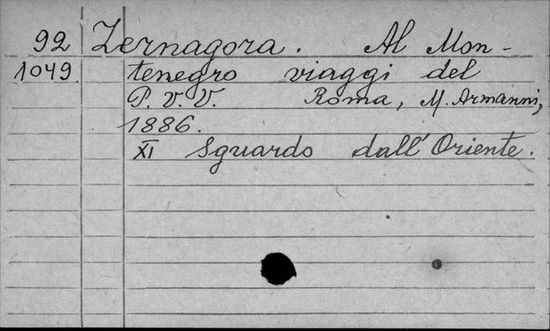 92 Zernagora. Al Mon-
1049. tenegro viaggi del
P. V. V. Roma, M. Armanni,
1886.
XI Sguardo dall'Oriente.